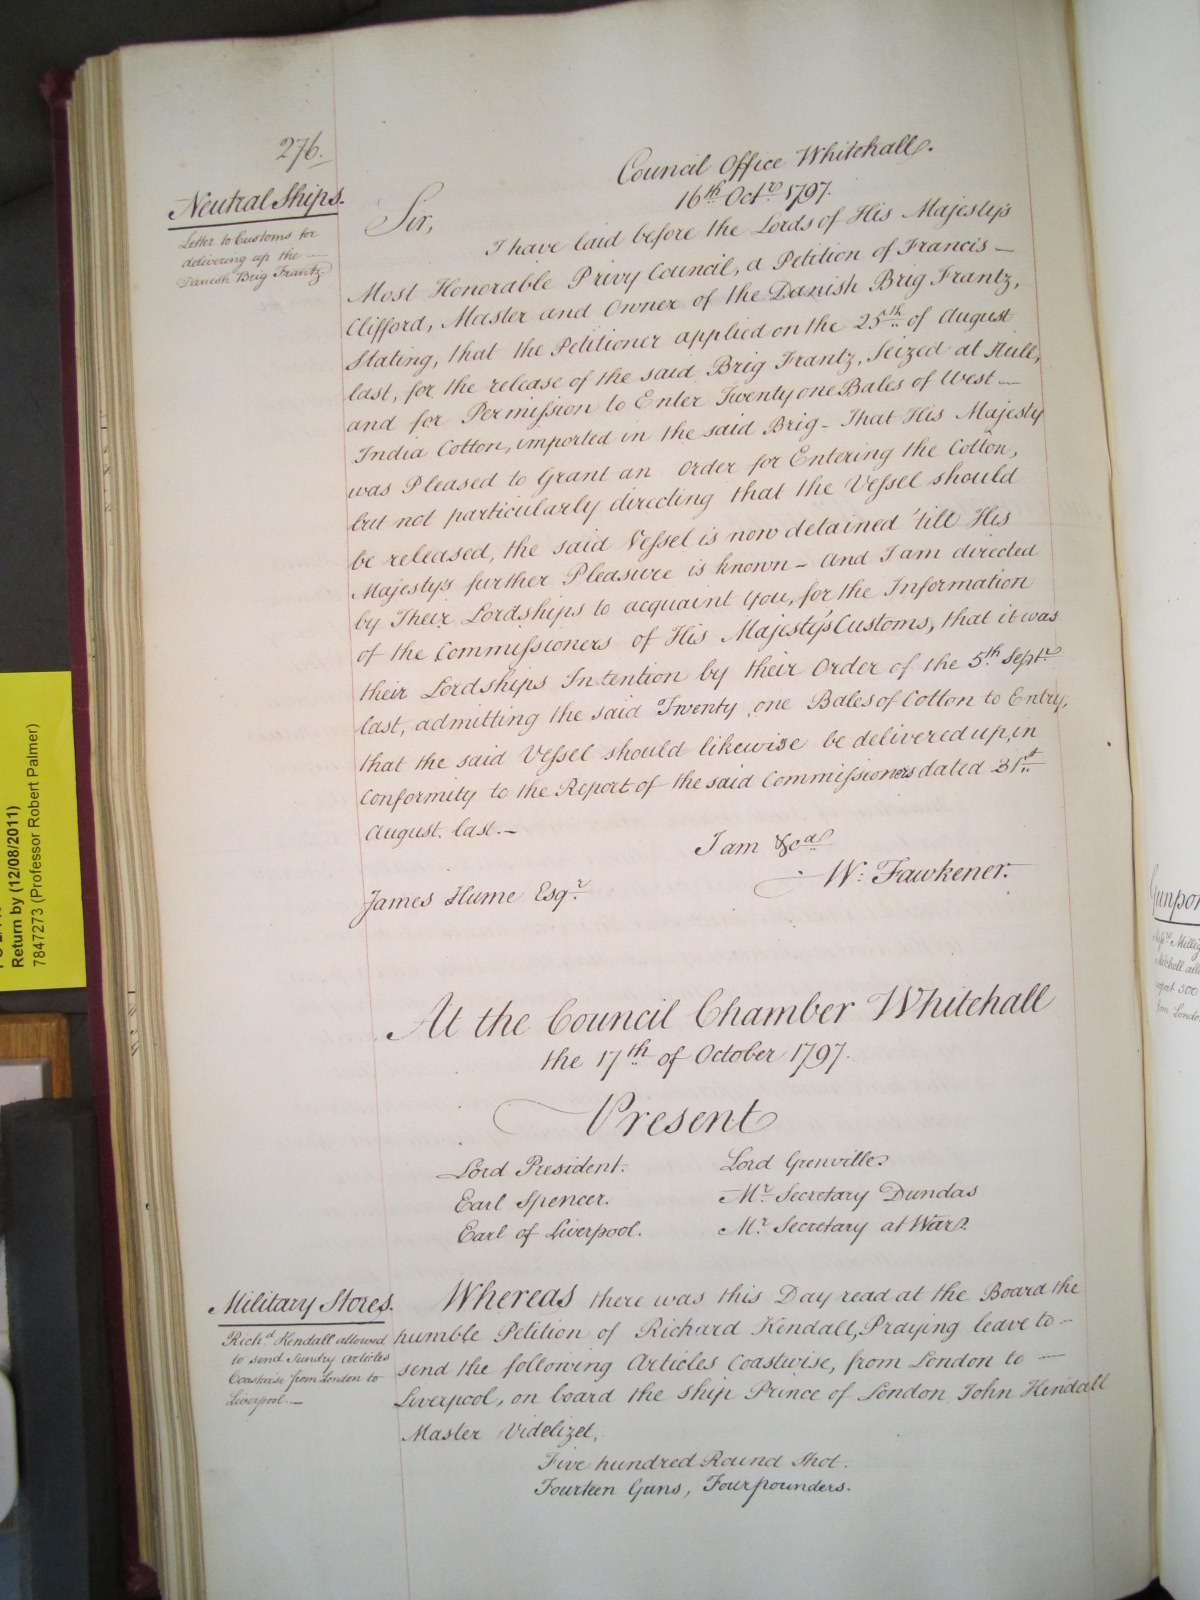 276.
Council Office Whitehall.
16th Octr 1797.
Neutral Ships.
Letter to Customs for
delivering up the —
Danish Brig Frantz
Sir,
I have laid before the Lords of His Majesty's
Most Honorable Privy Council, a Petition of Francis —
Clifford, Master and Owner of the Danish Brig Frantz,
Stating, that the Petitioner applied on the 25th of August
last, for the release of the said Brig Frantz, Seized at Hull,
and for Permission to Enter Twenty one Bales of West —
India Cotton, imported in the said Brig - That His Majesty
was Pleased to Grant an Order for Entering the Cotton,
but not particularly directing that the Vessel should
be released, the said Vessel is now detained 'till His
Majesty's further Pleasure is known - And I am directed
by Their Lordships to acquaint You, for the Information
of the Commissioners of His Majesty's Customs, that it was
their Lordships Intention by their Order of the 5th Septr
last, admitting the said Twenty one Bales of Cotton to Entry,
that the said Vessel should likewise be delivered up, in
Conformity to the Report of the said Commissioners dated 31st
August last. —
I am &ca
W: Fawkener.
James Hume Esqr
At the Council Chamber Whitehall
the 17th of October 1797.
Present
Lord President. Lord Grenville
Earl Spencer. Mr Secretary Dundas
Earl of Liverpool. Mr Secretary at War.
Military Stores.
Richd Kendall allowed
to send Sundry Articles
Coastwise from London to
Liverpool. —
Whereas there was this Day read at the Board the
humble Petition of Richard Kendall, Praying leave to —
send the following Articles Coastwise, from London to —
Liverpool, on board the Ship Prince of London John Hendall
Master Videlizet,
Five hundred Round Shot.
Fourteen Guns, Four pounders.
Return by (12/08/2011)
7847273 (Professor Robert Palmer)